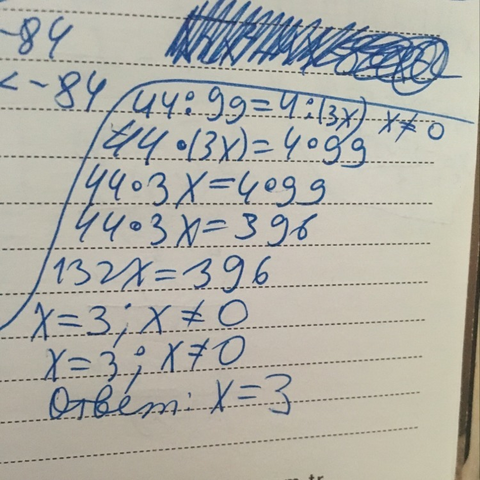 -84
< -84
44:99=4:(3x) x≠0
44•(3x)=4•99
44•3x=4•99
44•3x=396
132x=396
x=3; x≠0
x=3; x≠0
Ответ: x=3